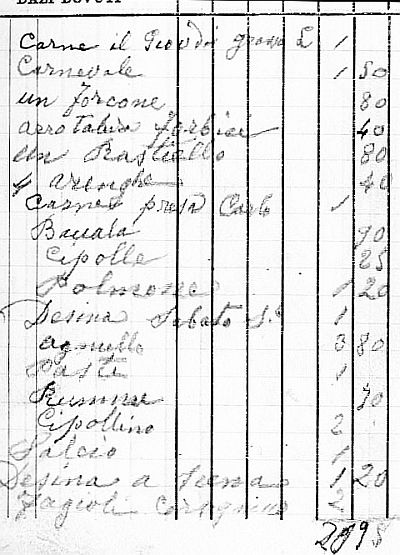 DAZI DOVUTI
Carne il Giovedi grasso L 1
Carnevale 1 50
un Forcone 80
arrotatura Forbici 40
un Rastello 80
4 aringhe 40
Carne presa Carlo 1
90
Cipolle 25
Polmone 1 20
Desina Sabato S. 1
agnello 3 80
Paste 1
70
Cipollino 2
Salcio 1
Desina a 1 20
Fagioli 2
2095